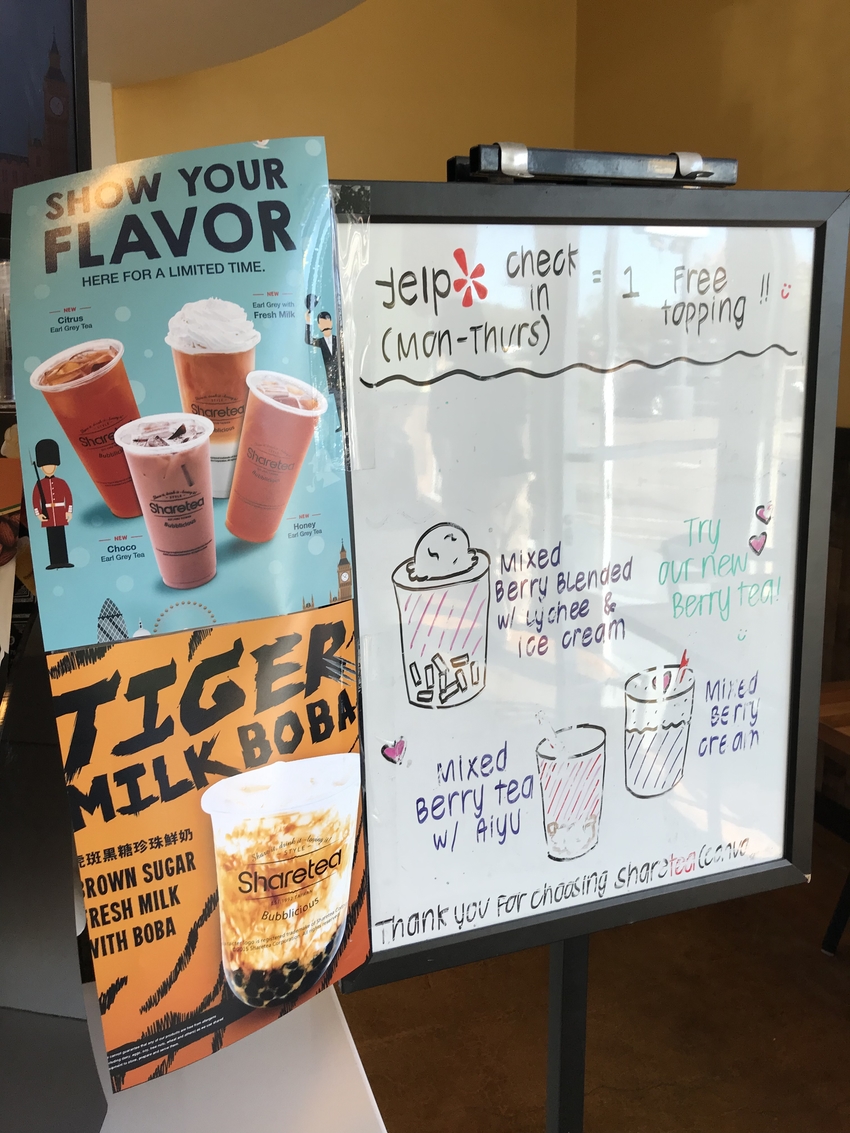 SHOW YOUR
FLAVOR
HERE FOR A LIMITED TIME.
NEW
Citrus
Earl Grey Tea
NEW
Earl Grey with
Fresh Milk
Sharetea
Sharetea
Sharetea
Sharetea
Bubblicious
NEW
Choco
Earl Grey Tea
NEW
Honey
Earl Grey Tea
TIGER
MILK BOBA
斑黑糖珍珠鮮奶
BROWN SUGAR
FRESH MILK
WITH BOBA
STYLE
Sharetea
Bubblicious
yelp check
in = 1 Free
topping !!
(Mon-Thurs)
Mixed
Berry Blended
w/ Lychee &
ice cream
Try
our new
Berry tea!
Mixed
Berry
cream
Mixed
Berry tea
w/ Aiyu
Thank you for choosing sharetea